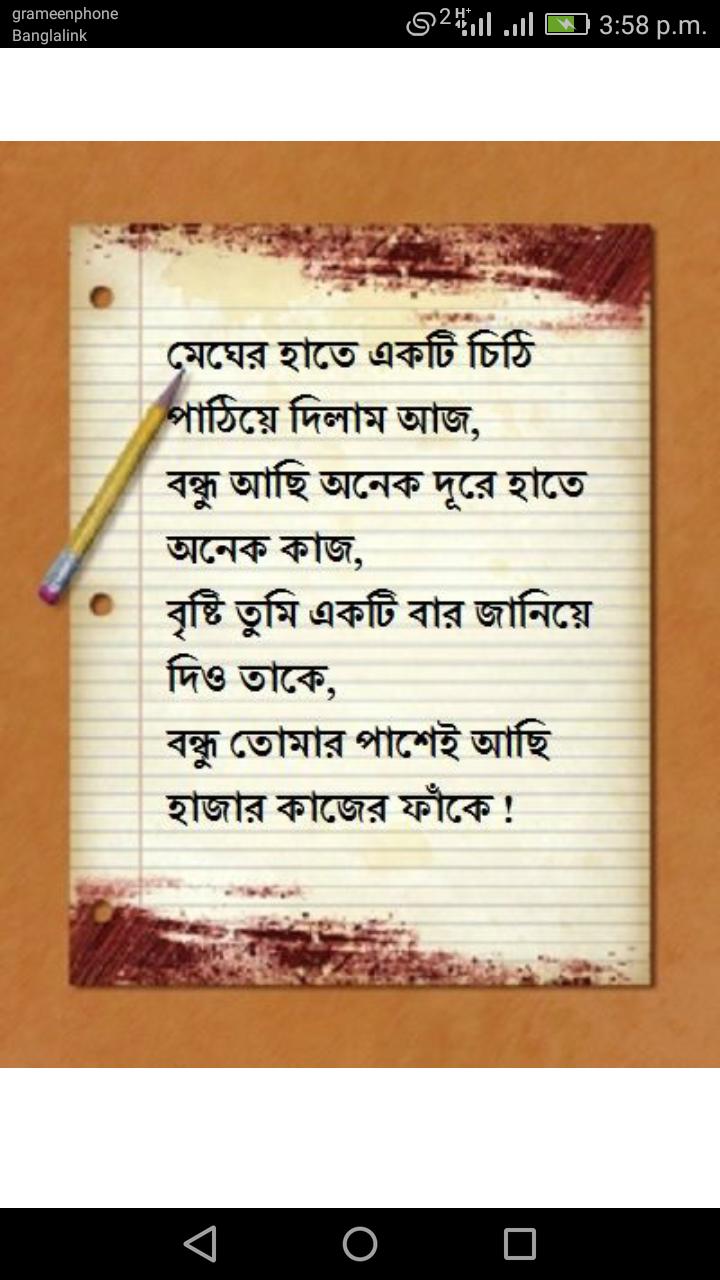 grameenphone
Banglalink
2 H+ 3:58 p.m.
মেঘের হাতে একটি চিঠি
পাঠিয়ে দিলাম আজ,
বন্ধু আছি অনেক দূরে হাতে
অনেক কাজ,
বৃষ্টি তুমি একটি বার জানিয়ে
দিও তাকে,
বন্ধু তোমার পাশেই আছি
হাজার কাজের ফাঁকে !